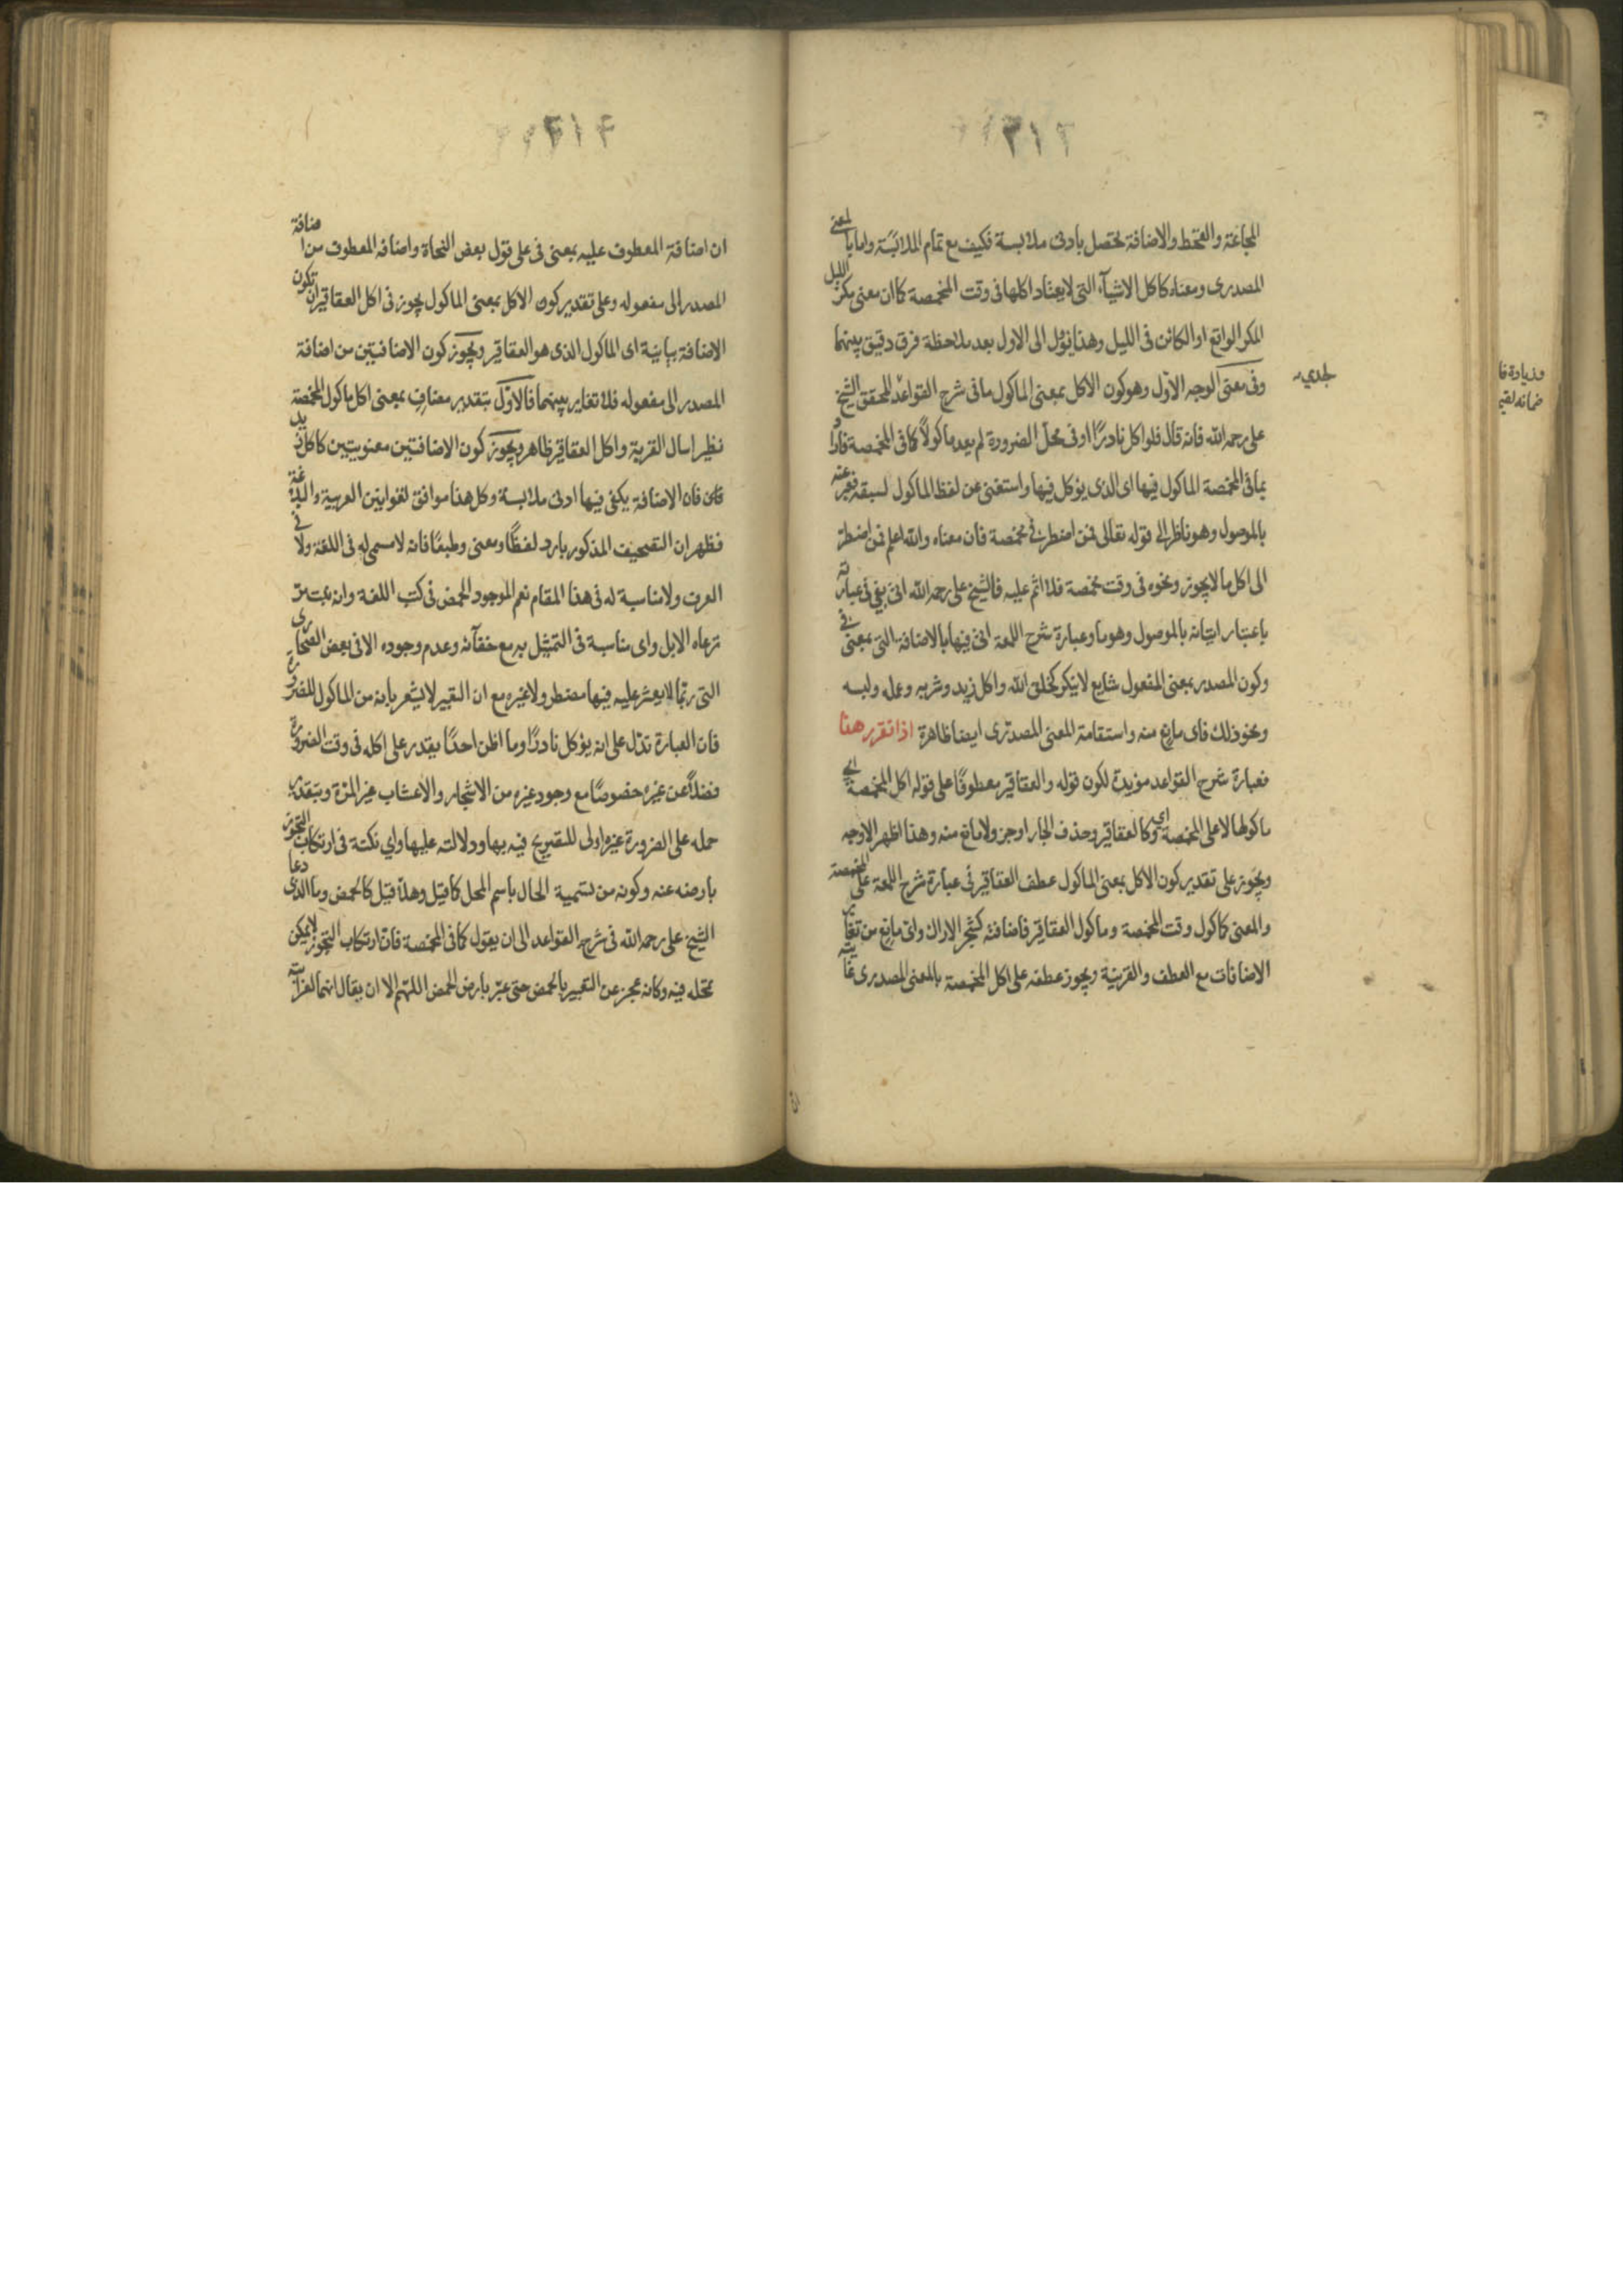 ٢١٣
المجاعة والقحط والاضافة تحصل بادنى ملابسة فكيف مع تمام الملابسة واما بالمعنى
المصدرى ومعناه كاكل الاشيآء التى لا يعتاد اكلها فى وقت المخمصة كما ان معنى مكر الليل
المكر الواقع او الكائن فى الليل وهذا يؤل الى الاول بعد ملاحظة فرق دقيق بينهما
وفى معنى الوجه الاول وهو كون الاكل بمعنى الماكول ما فى شرح القواعد للمحقق الشيخ
لجدي
على رحمه الله فانه قال فلو اكل نادرًا او فى محل الضرورة لم يعد ماكولاً كما فى المخمصة فاراد
بما فى المخمصة الماكول فيها اى الذى يؤكل فيها واستغنى عن لفظ الماكول لسبقه فعبر عنه
بالموصول وهو ناظر الى قوله تعالى فمن اضطر فى مخمصة فان معناه والله اعلم فمن اضطر
الى اكل ما لا يجوز ونحوه فى وقت مخمصة فلا اثم عليه فالشيخ على رحمه الله اتى بفى فى عبارته
باعتبار اتيانه بالموصول وهو ما وعبارة شرح اللمعة اتى فيها بالاضافة التى بمعنى فى
وكون المصدر بمعنى المفعول شايع لا ينكر كخلق الله واكل زيد وشربه وعمله ولبسه
ونحو ذلك فاى مانع منه واستقامة المعنى المصدرى ايضا ظاهرة اذا تقرر هذا
فعبارة شرح القواعد مؤيدة لكون قوله والعقاقير معطوفًا على قوله اكل المخمصة اى
ماكولها لا على المخمصة اى وكالعقاقير وحذف الجار اوجز ولا مانع منه وهذا اظهر الاوجه
ويجوز على تقدير كون الاكل بمعنى الماكول عطف العقاقير فى عبارة شرح اللمعة على المخمصة
والمعنى كماكول وقت المخمصة وماكول العقاقير فاضافته كشجر الاراك واى مانع من تغاير
الاضافات مع العطف والقرينة ويجوز عطفه على اكل المخمصة بالمعنى المصدرى غايته
وزيادة فا
ضمانه لقيم
٢١٤
ان اضافة المعطوف عليه بمعنى فى على قول بعض النحاة واضافة المعطوف من اضافة
المصدر الى مفعوله وعلى تقدير كون الاكل بمعنى الماكول يجوز فى اكل العقاقير ان تكون
الاضافة بيانية اى الماكول الذى هو العقاقير ويجوز كون الاضافتين من اضافة
المصدر الى مفعوله فلا تغاير بينهما فالاول بتقدير مضاف بمعنى اكل ماكول المخمصة
نظير اسال القرية واكل العقاقير ظاهر ويجوز كون الاضافتين معنويتين كما كان يد
فان الاضافة يكفى فيها ادنى ملابسة وكل هذا موافق لقوانين العربية والبلاغة
فظهر ان التصحيف المذكور بارد لفظًا ومعنى وطبعًا فانه لا مسمى له فى اللغة ولا فى
العرف ولا مناسبة له فى هذا المقام نعم الموجود الحمض فى كتب اللغة وانه نبت مر
ترعاه الابل واى مناسبة فى التمثيل به مع خفآئه وعدم وجوده الا فى بعض الصحارى
التى ربما لا يعثر عليه فيها مضطر ولا غيره مع ان التعبير لا يشعر بانه من الماكول للضرورة
فان العبارة تدل على انه يؤكل نادرًا وما اظن احدًا يقدر على اكله فى وقت الضرورة
فضلاً عن غيره خصوصًا مع وجود غيره من الاشجار والاعشاب غير المرة وبتقدير
حمله على الضرورة غيره اولى للتصريح فيه بها ودلالته عليها واي نكتة فى ارتكاب التجوز
بارضه عنه وكونه من تسمية الحال باسم المحل كما قيل وهلا قيل كالحمض وما الذى دعا
الشيخ على رحمه الله فى شرح القواعد الى ان يقول كما فى المخمصة فان ارتكاب التجوز لا يمكن
تمحله فيه وكانه عجز عن التعبير بالحمض حتى عبر بارض الحمض اللهم الا ان يقال انها لغرابته